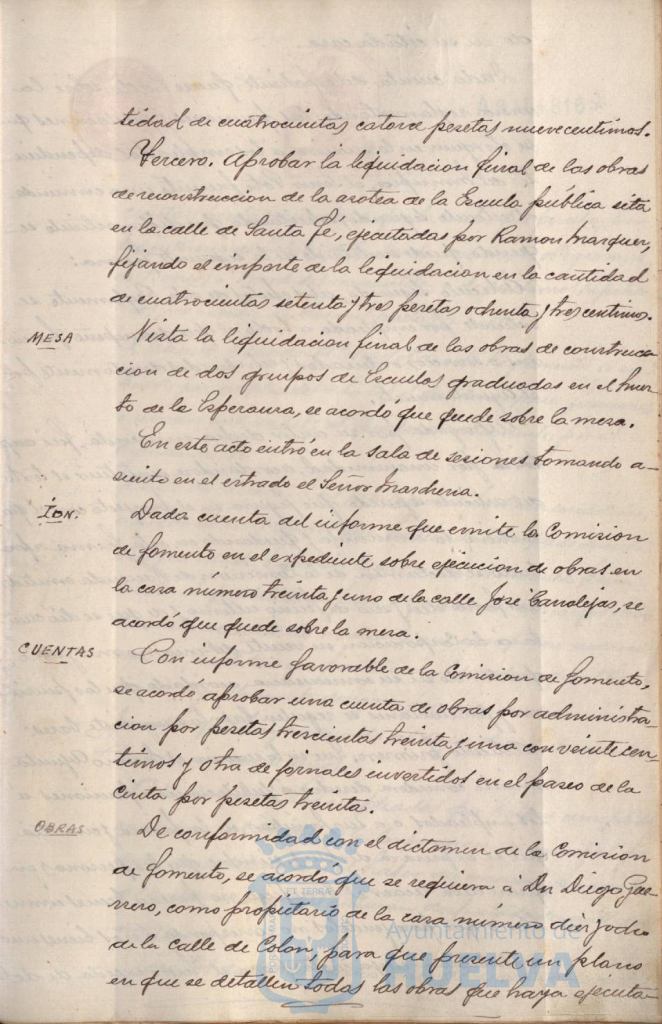 tidad de cuatrocientas catorce pesetas nueve centimos.
Tercero. Aprobar la liquidacion final de las obras
de reconstruccion de la azotea de la Escuela pública sita
en la calle de Santa Fé, ejecutadas por Ramon Marquez,
fijando el importe de la liquidacion en la cantidad
de cuatrocientas setenta y tres pesetas ochenta y tres centimos.
MESA
Vista la liquidacion final de las obras de construca
cion de dos grupos de Escuelas graduadas en el huer-
to de la Esperanza, se acordó que quede sobre la mesa.
En este acto entró en la sala de sesiones tomando a-
siento en el estrado el Señor Marchena.
ÍDN.
Dada cuenta del informe que emite la Comision
de fomento en el expediente sobre ejecucion de obras en
la casa número treinta y uno de la calle José Canalejas, se
acordó que quede sobre la mesa.
CUENTAS
Con informe favorable de la Comision de fomento,
se acordó aprobar una cuenta de obras por administra-
cion por pesetas trescientas treinta y una con veinte cen-
timos y otra de jornales invertidos en el paseo de la
cinta por pesetas treinta.
OBRAS
De conformidad con el dictamen de la Comision
de fomento, se acordó que se requiera á Dn Diego Gue-
rrero, como propietario de la casa número diez y ocho
de la calle de Colon, para que presente un plano
en que se detallen todas las obras que haya ejecuta-
Ayuntamiento de
HUELVA